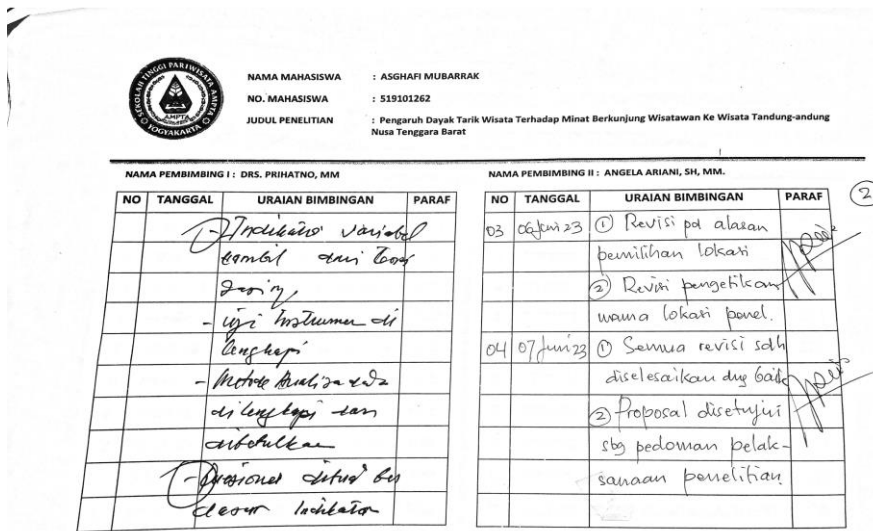 SEKOLAH TINGGI PARIWISATA AMPTA
AMPTA
YOGYAKARTA
NAMA MAHASISWA : ASGHAFI MUBARRAK
NO. MAHASISWA : 519101262
JUDUL PENELITIAN : Pengaruh Dayak Tarik Wisata Terhadap Minat Berkunjung Wisatawan Ke Wisata Tandung-andung
Nusa Tenggara Barat
NAMA PEMBIMBING I : DRS. PRIHATNO, MM
NO TANGGAL URAIAN BIMBINGAN PARAF
- Indikator variabel
kembil dari teori
- uji Instrumen di
lengkapi
- Metode Analisa data
dilengkapi dan
dibetulkan
dasar Indikator
NAMA PEMBIMBING II : ANGELA ARIANI, SH, MM.
2
NO TANGGAL URAIAN BIMBINGAN PARAF
03 06 Juni 23 1 Revisi pd alasan
pemilihan lokasi
2 Revisi pengetikan
nama lokasi penel.
04 07 Juni 23 1 Semua revisi sdh
diselesaikan dng baik
2 Proposal disetujui
sbg pedoman pelak-
sanaan penelitian